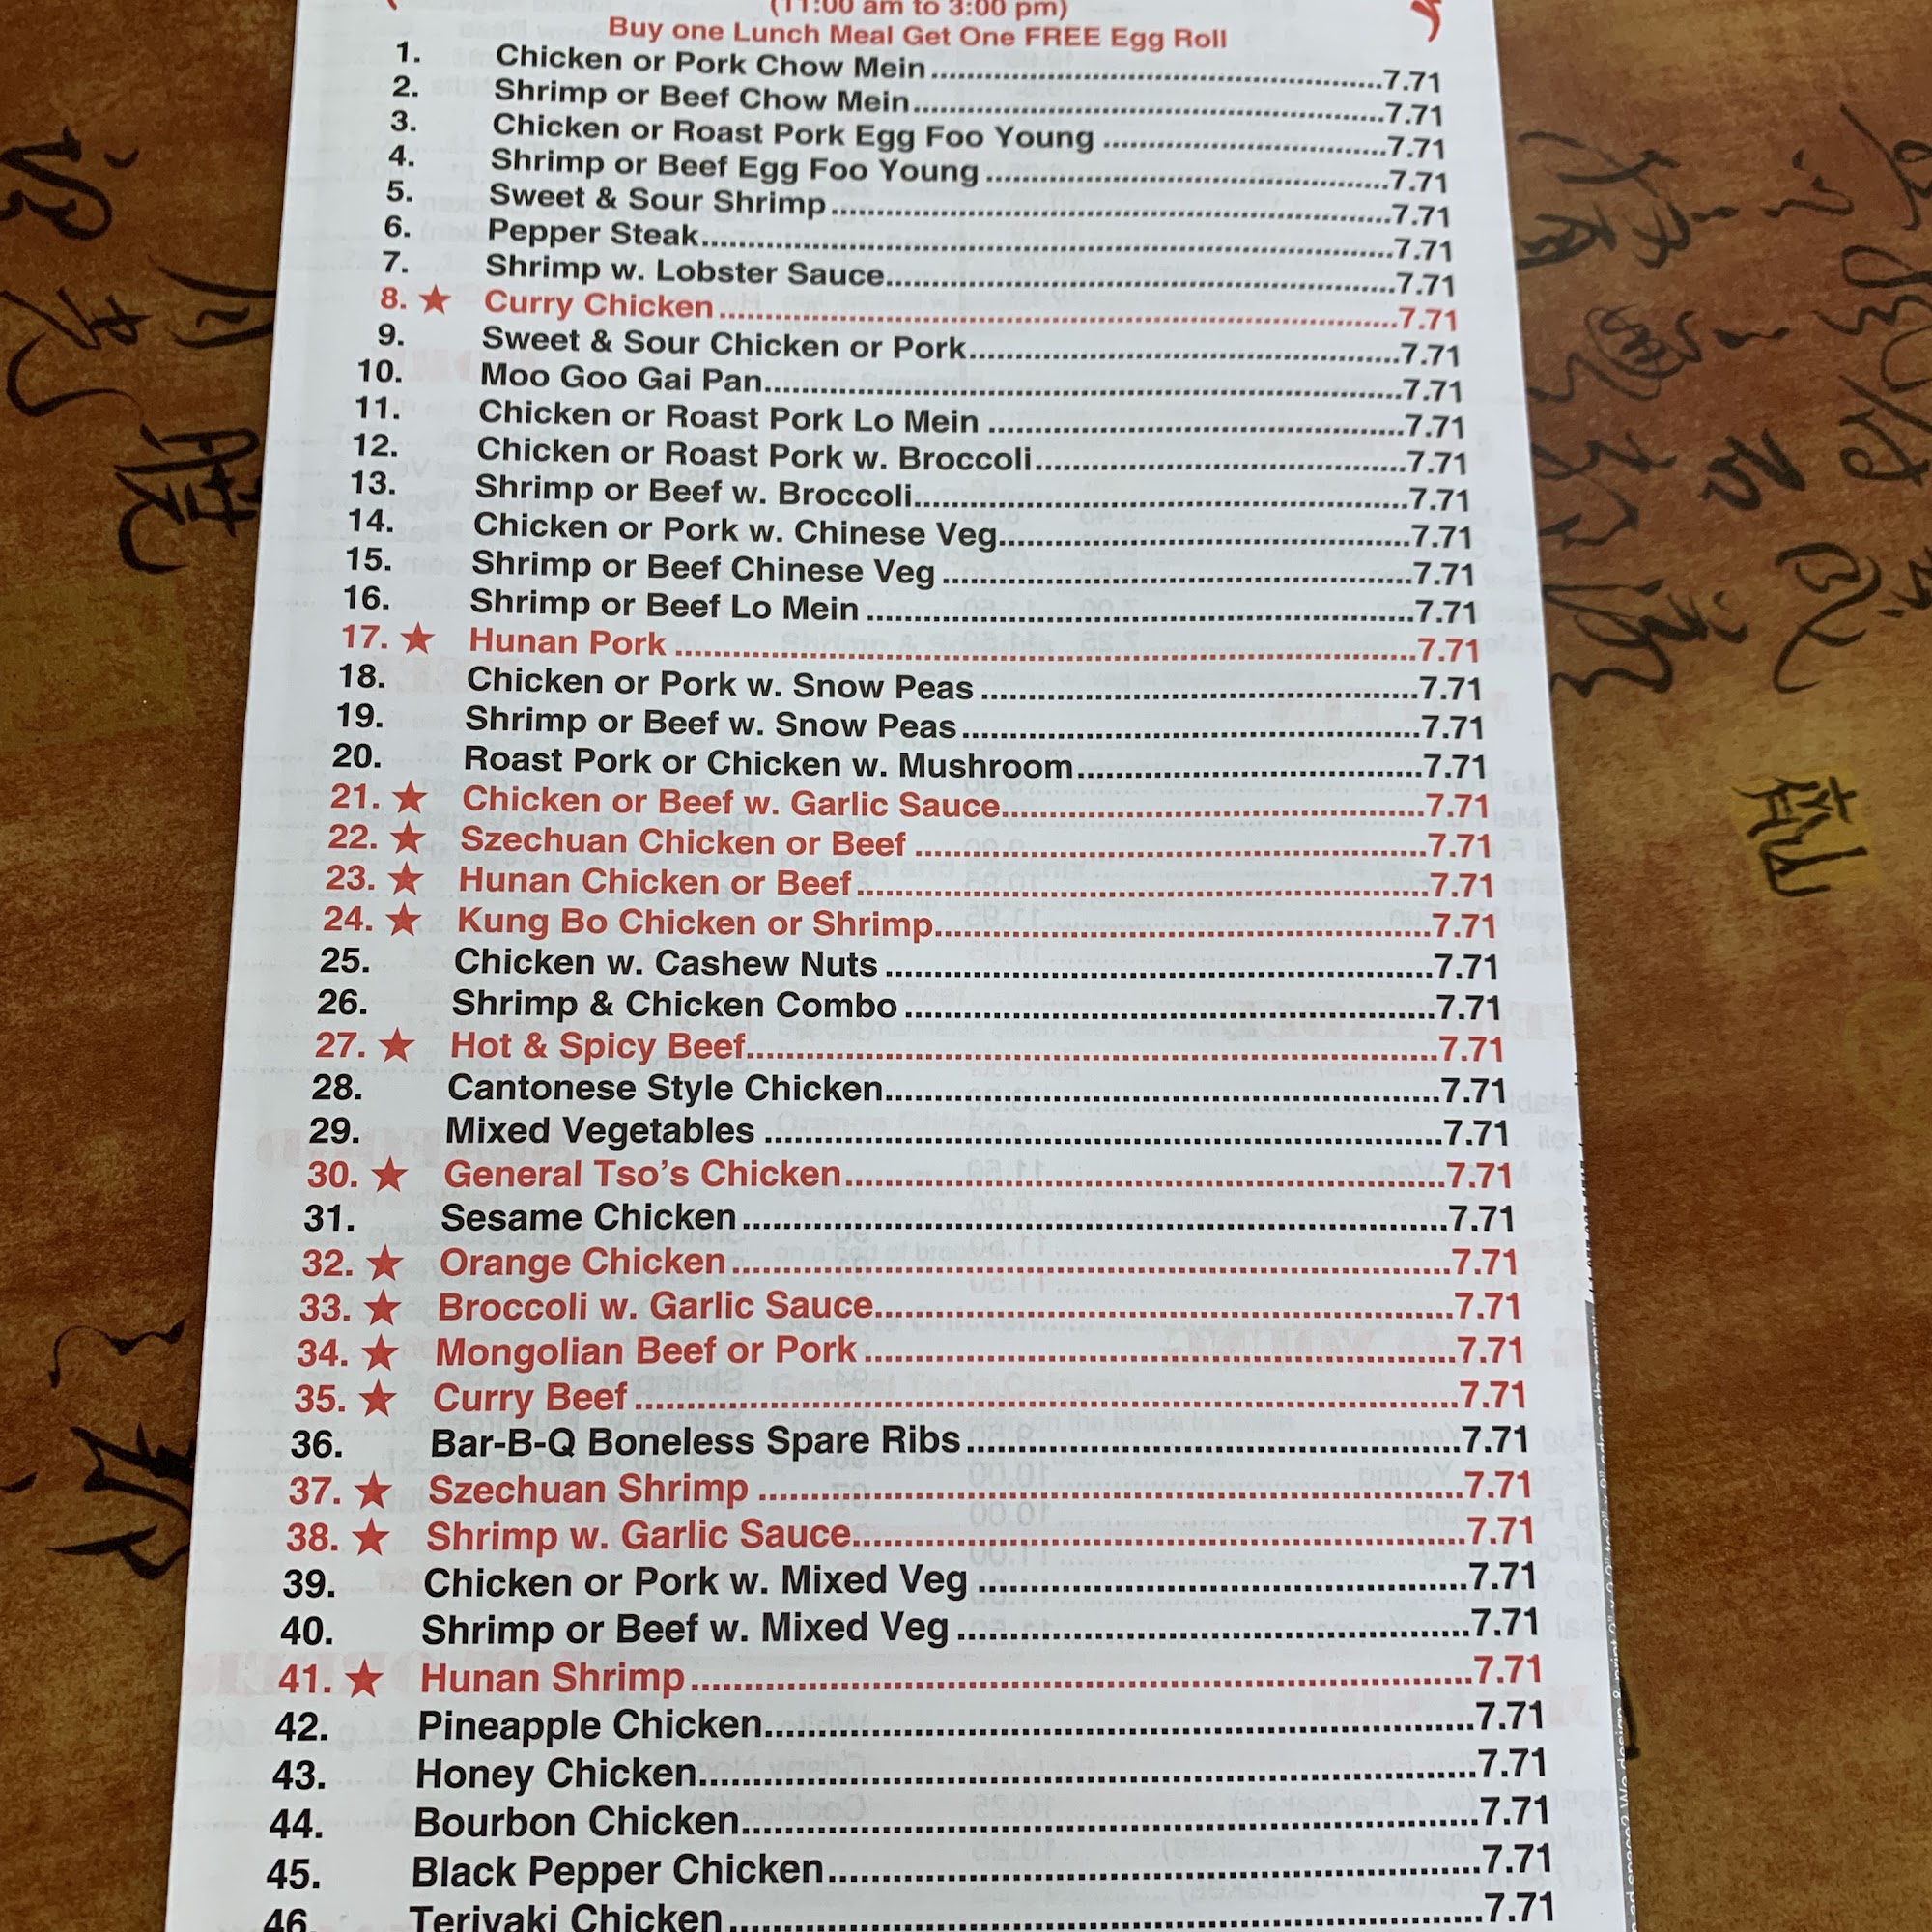 (11:00 am to 3:00 pm)
Buy one Lunch Meal Get One FREE Egg Roll
1. Chicken or Pork Chow Mein 7.71
2. Shrimp or Beef Chow Mein 7.71
3. Chicken or Roast Pork Egg Foo Young 7.71
4. Shrimp or Beef Egg Foo Young 7.71
5. Sweet & Sour Shrimp 7.71
6. Pepper Steak 7.71
7. Shrimp w. Lobster Sauce 7.71
8. ★ Curry Chicken 7.71
9. Sweet & Sour Chicken or Pork 7.71
10. Moo Goo Gai Pan 7.71
11. Chicken or Roast Pork Lo Mein 7.71
12. Chicken or Roast Pork w. Broccoli 7.71
13. Shrimp or Beef w. Broccoli 7.71
14. Chicken or Pork w. Chinese Veg 7.71
15. Shrimp or Beef Chinese Veg 7.71
16. Shrimp or Beef Lo Mein 7.71
17. ★ Hunan Pork 7.71
18. Chicken or Pork w. Snow Peas 7.71
19. Shrimp or Beef w. Snow Peas 7.71
20. Roast Pork or Chicken w. Mushroom 7.71
21. ★ Chicken or Beef w. Garlic Sauce 7.71
22. ★ Szechuan Chicken or Beef 7.71
23. ★ Hunan Chicken or Beef 7.71
24. ★ Kung Bo Chicken or Shrimp 7.71
25. Chicken w. Cashew Nuts 7.71
26. Shrimp & Chicken Combo 7.71
27. ★ Hot & Spicy Beef 7.71
28. Cantonese Style Chicken 7.71
29. Mixed Vegetables 7.71
30. ★ General Tso's Chicken 7.71
31. Sesame Chicken 7.71
32. ★ Orange Chicken 7.71
33. ★ Broccoli w. Garlic Sauce 7.71
34. ★ Mongolian Beef or Pork 7.71
35. ★ Curry Beef 7.71
36. Bar-B-Q Boneless Spare Ribs 7.71
37. ★ Szechuan Shrimp 7.71
38. ★ Shrimp w. Garlic Sauce 7.71
39. Chicken or Pork w. Mixed Veg 7.71
40. Shrimp or Beef w. Mixed Veg 7.71
41. ★ Hunan Shrimp 7.71
42. Pineapple Chicken 7.71
43. Honey Chicken 7.71
44. Bourbon Chicken 7.71
45. Black Pepper Chicken 7.71
46. Teriyaki Chicken 7.71